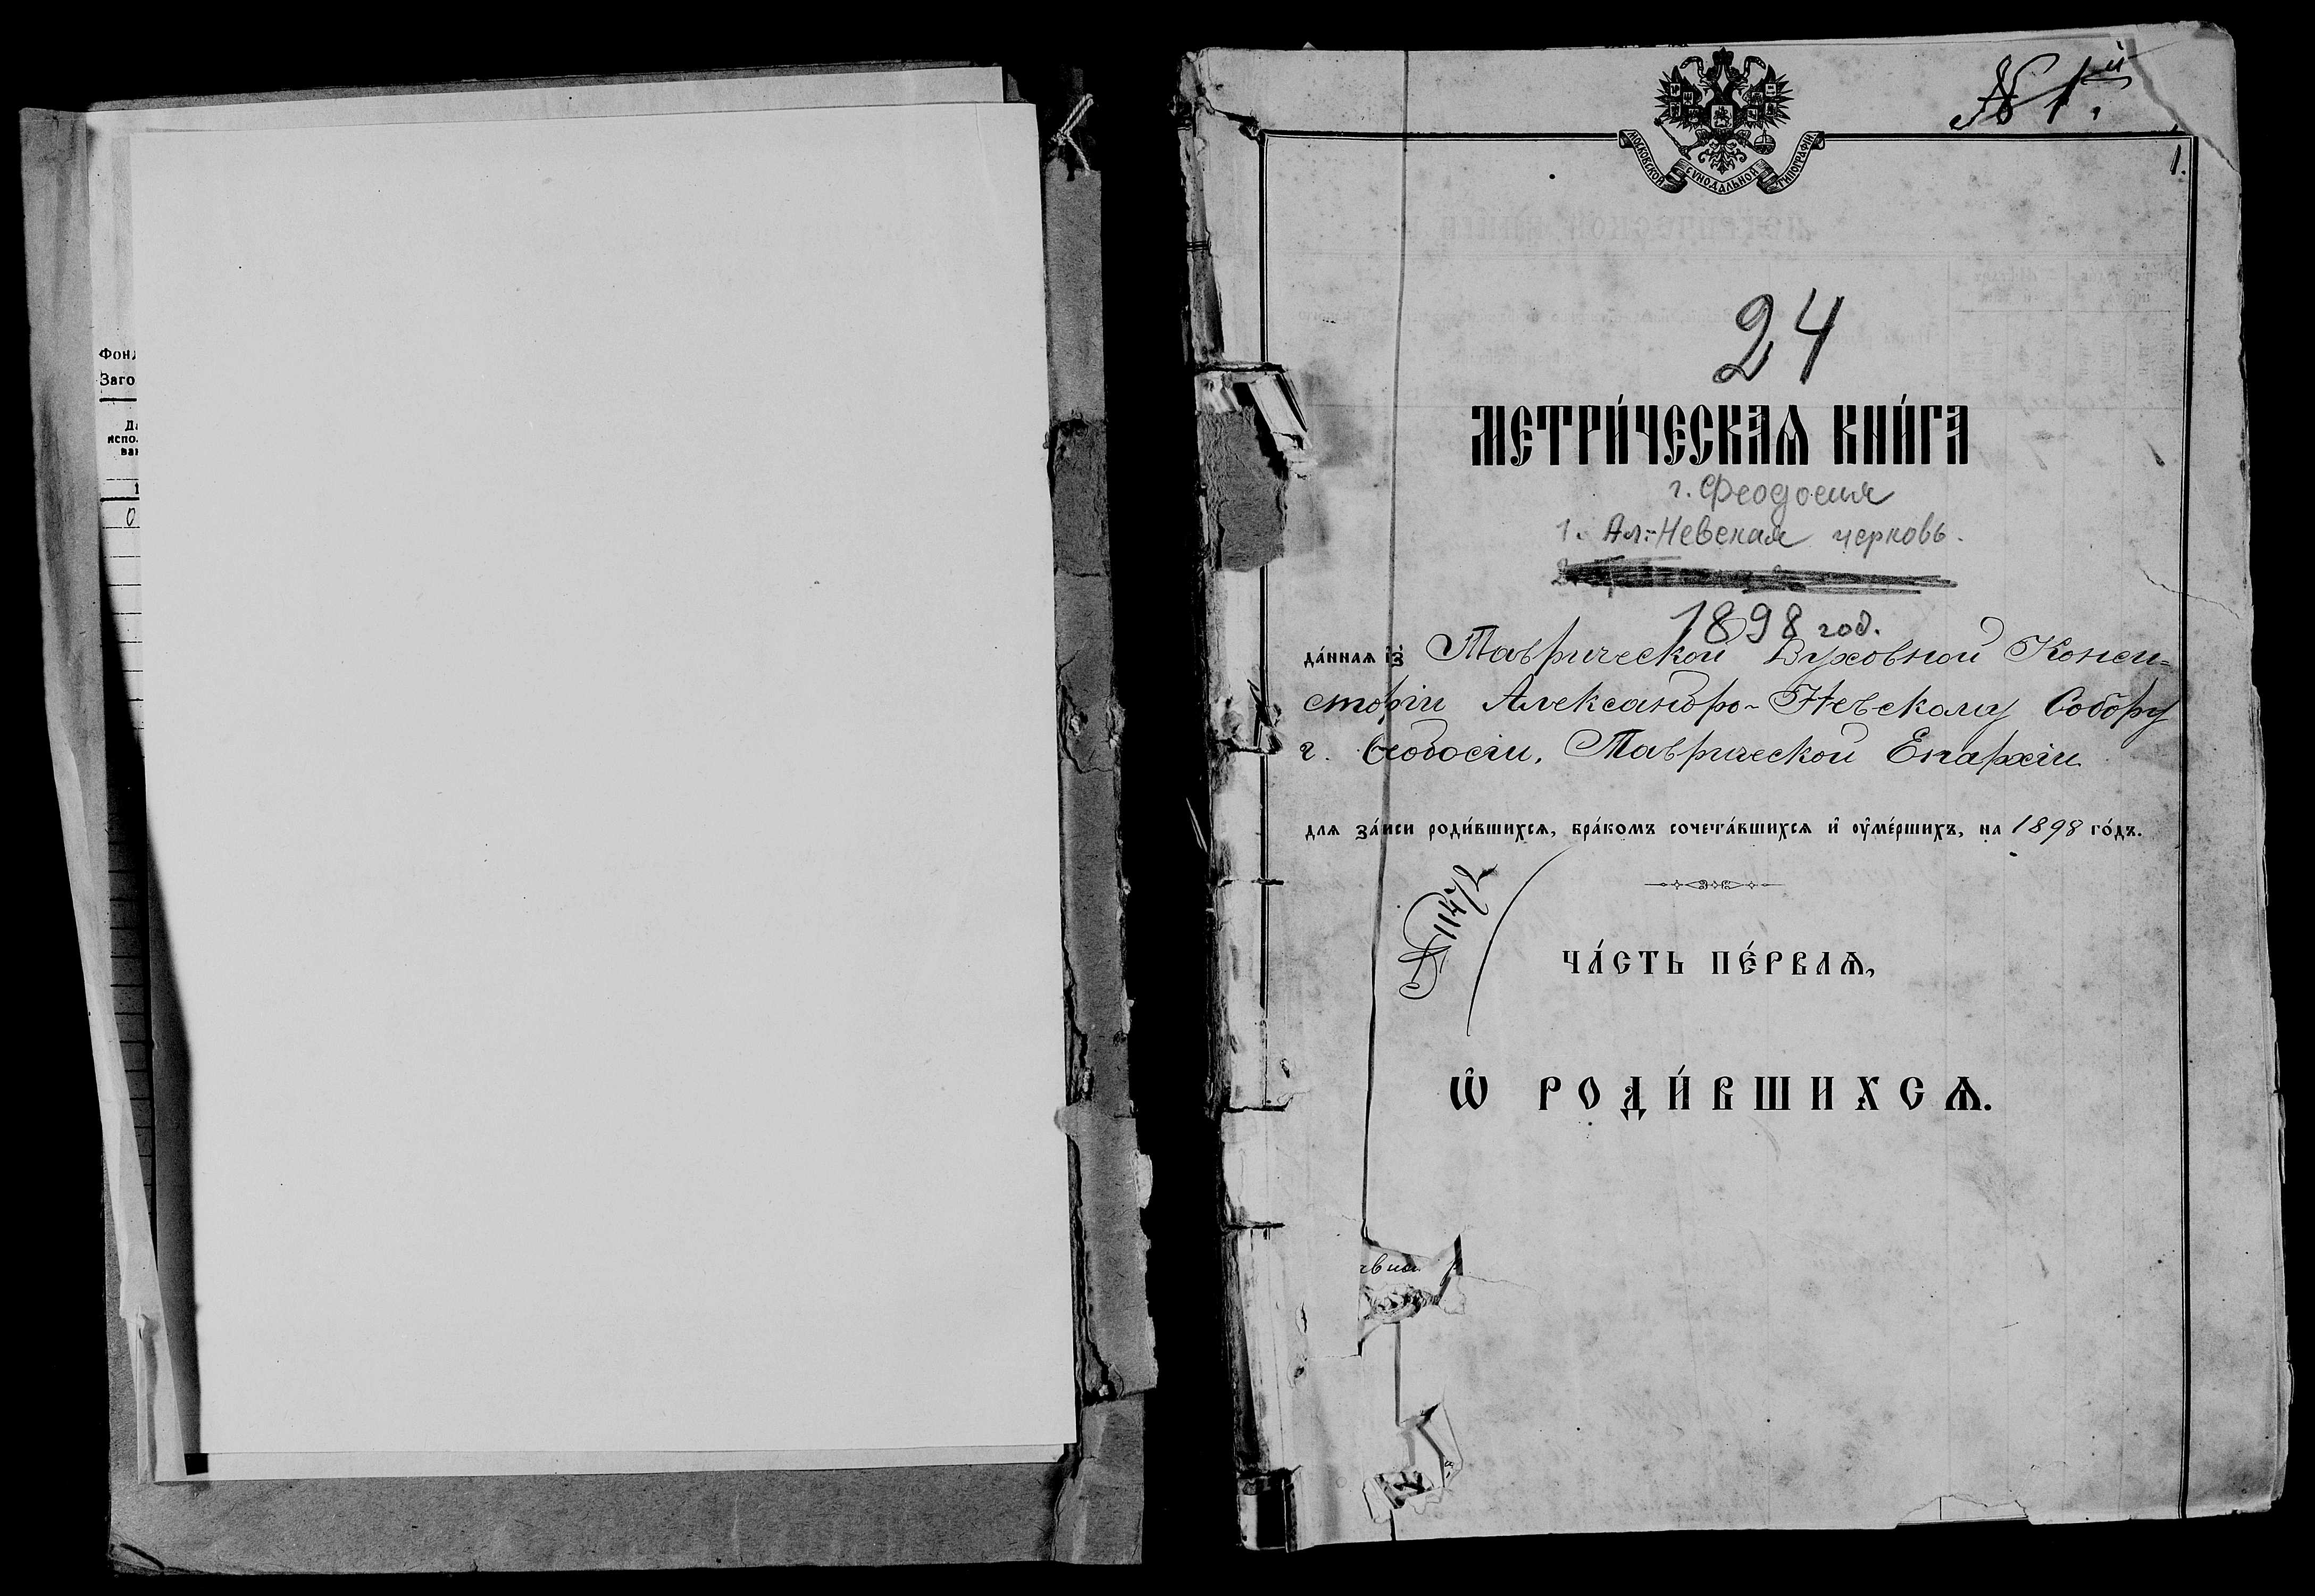 Фон
Заго
испо
0
№ 1й.
МОСКОВСКОЙ СУНОДАЛЬНОЙ ТИПОГРАФІИ
1.
24
МЕТРИ́ЧЕСКАѦ КНИ́ГА
г. Феодосия
1. Ал.-Невская церковь.
1898 год.
да́ннаѧ из̾ Таврической Духовной Конси-
сторіи Александро-Невскому Собору
г. Ѳеодосіи, Таврической Епархіи
для за́писи роди́вшихсѧ, бра́комъ сочета́вшихсѧ и҆ оу҆ме́ршихъ, на 1898 го́дъ.
№ 11472
ЧА́СТЬ ПЕ́РВАѦ,
Ѡ҆ РОДИ́ВШИХСѦ.